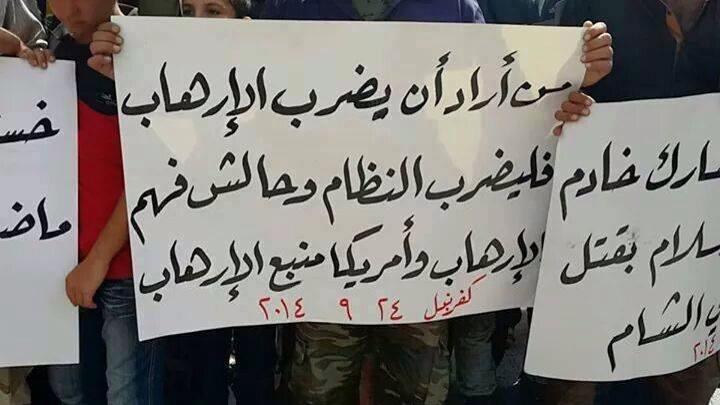 من أراد أن يضرب الإرهاب
فليضرب النظام وحالش فهم
الإرهاب وأمريكا منبع الإرهاب
كفرنبل ٢٤ ٩ ٢٠١٤
خادم
بقتل
الشام